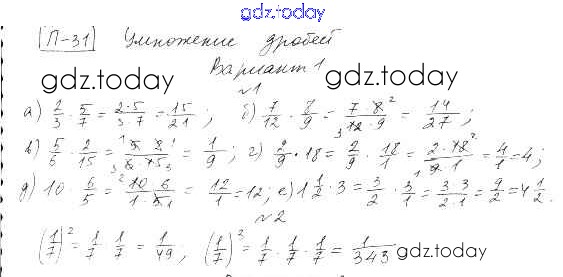 gdz.today
П-31 Умножение дробей
gdz.today Вариант 1 gdz.today
№1
а) 2/3 · 5/7 = 2·5/3·7 = 15/21; б) 7/12 · 8/9 = 7·8²/₃12·9 = 14/27;
в) 5/6 · 2/15 = ¹5·2¹/₃6·15₃ = 1/9; г) 2/9 · 18 = 2/9 · 18/1 = 2·18²/₁9·1 = 4/1 = 4;
д) 10 · 6/5 = ²10·6/1·5₁ = 12/1 = 12; е) 1 1/2 · 3 = 3/2 · 3/1 = 3·3/2·1 = 9/2 = 4 1/2.
№2
(1/7)² = 1/7 · 1/7 = 1/49; (1/7)³ = 1/7 · 1/7 · 1/7 = 1/343 gdz.today